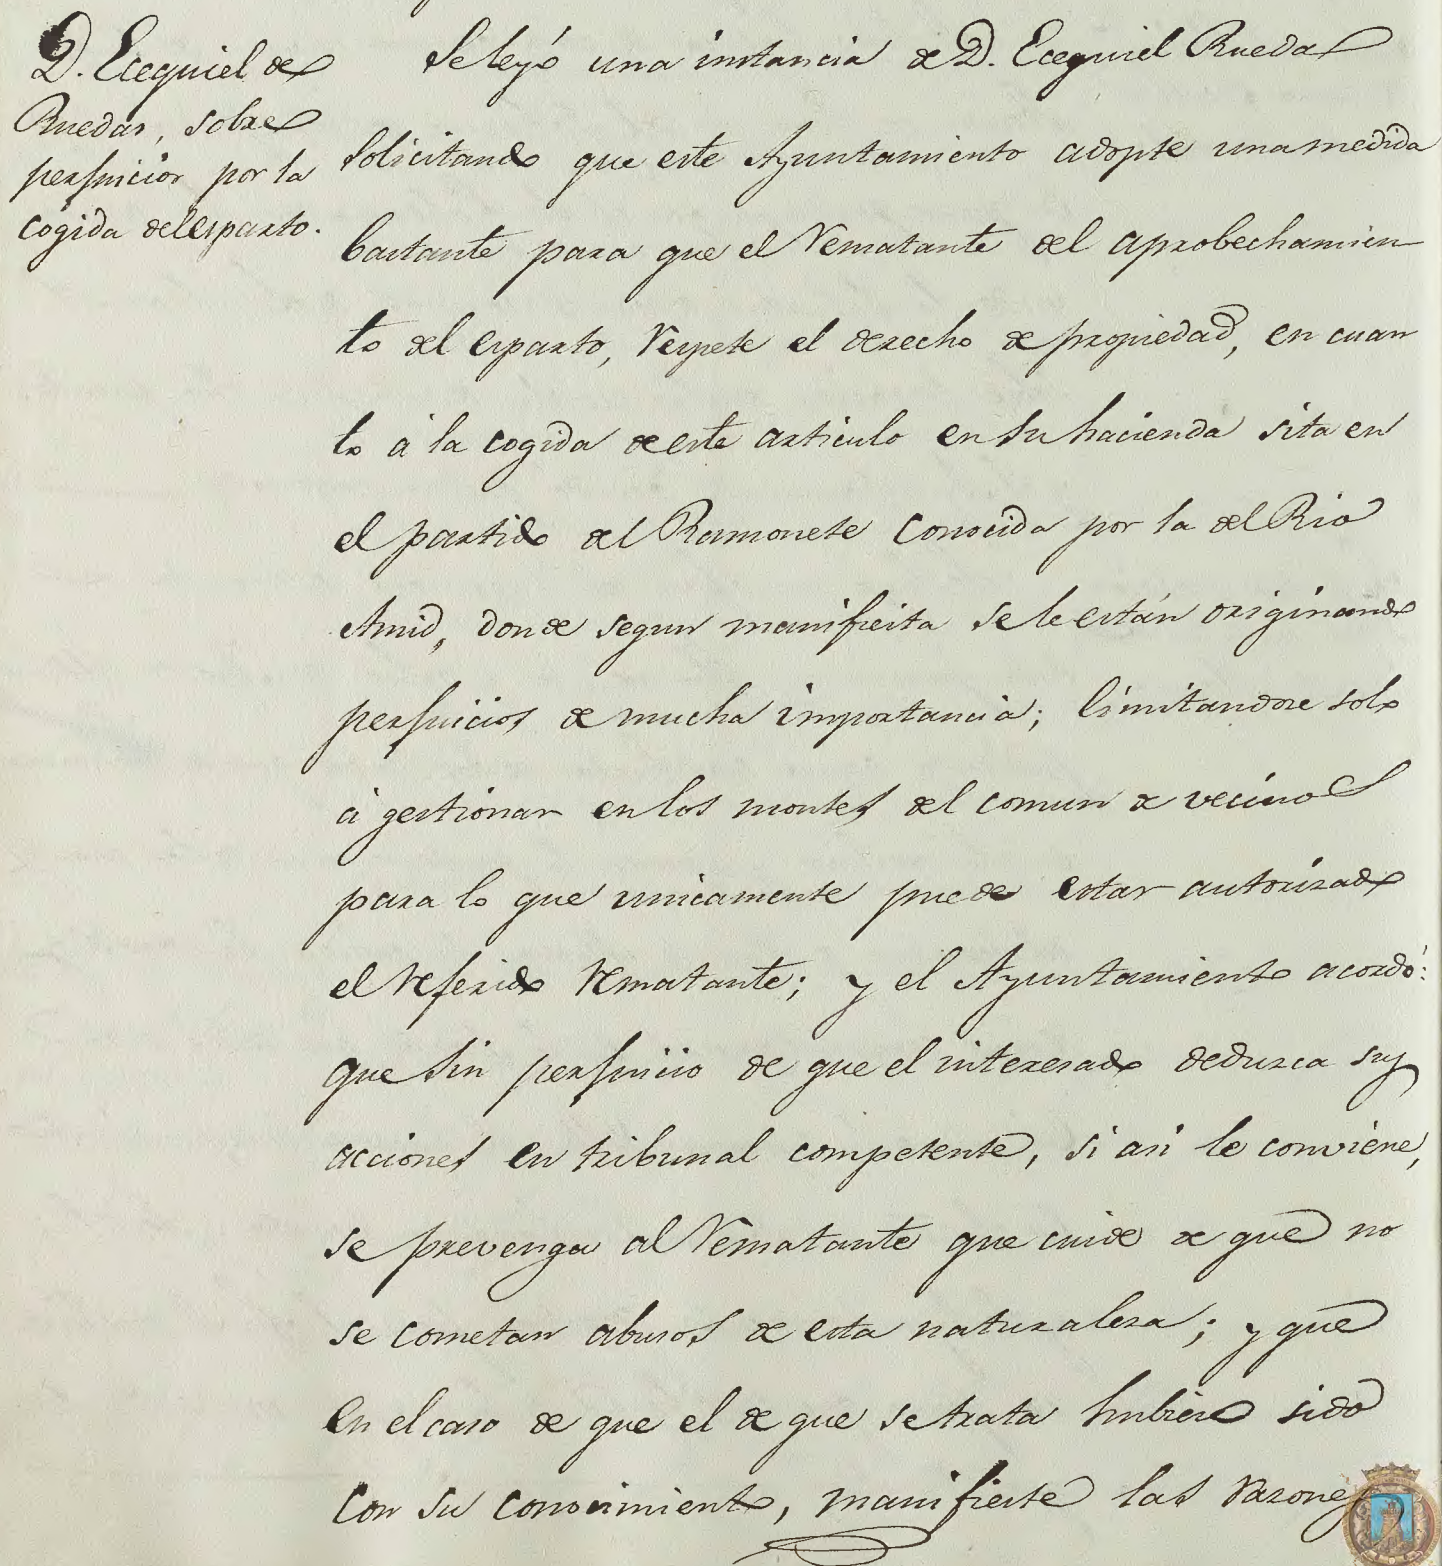 D. Ecequiel de
Ruedas, sobre
perjuicios por la
cogida del esparto.
Se leyó una instancia de D. Ecequiel Ruedas
solicitando que este Ayuntamiento adopte una medida
bastante para que el rematante del aprobechamien
to del esparto, respete el derecho de propiedad, en cuan
to á la cogida de este articulo en su hacienda sita en
el partido del Ramonete conocida por la del Rio
Amid, donde segun manifiesta se le están originando
perjuicios de mucha importancia; limitandose solo
á gestionar en los montes del comun de vecinos
para lo que unicamente puede estar autorizado
el referido rematante; y el Ayuntamiento acordó:
que sin perjuicio de que el interesado deduzca sus
acciones en tribunal competente, si asi le conviene,
se prevenga al rematante que cuide de que no
se cometan abusos de esta naturaleza; y que
en el caso de que el de que se trata hubiere sido
con su conocimiento, manifieste las razones